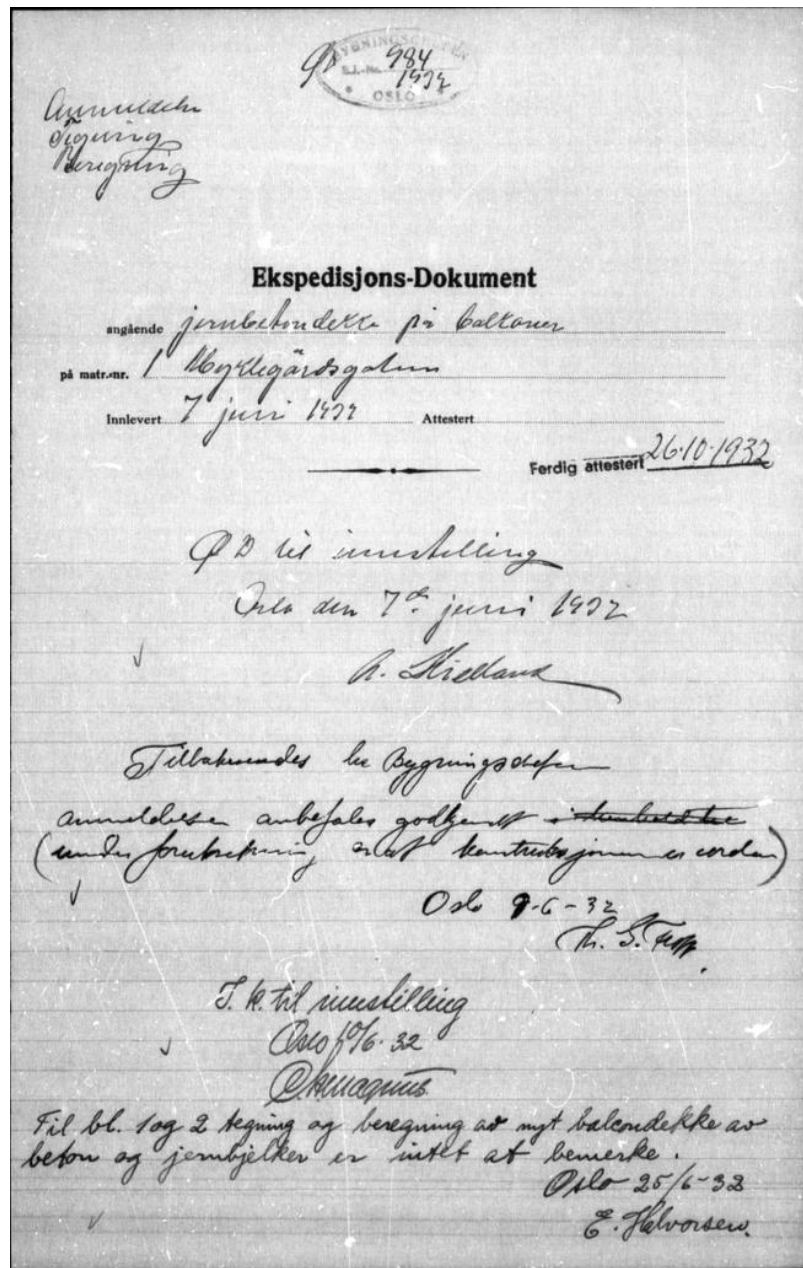 ØD 984
1932
BYGNINGSCHEFEN
OSLO
Anmeldelse
Tegning
Beregning
Ekspedisjons-Dokument
angående jernbetondekke på balkoner
på matr.-nr. 1 Myklegårdsgaten
Innlevert 7 juni 1932 Attestert
Ferdig attestert 26.10.1932
ØD til innstilling
Oslo den 7de juni 1932
Kielland
Tilbakesendes hr Bygningschefen
anmeldelsen anbefales godkjent
(under forutsetning at konstruksjonen er iorden)
Oslo 9-6-32
Th. S.
J. k. til innstilling
Oslo 10/6-32
Til bl. 1 og 2 tegning og beregning av nyt balcondekke av
beton og jernbjelker er intet at bemerke.
Oslo 25/6-32
E. Halvorsen.